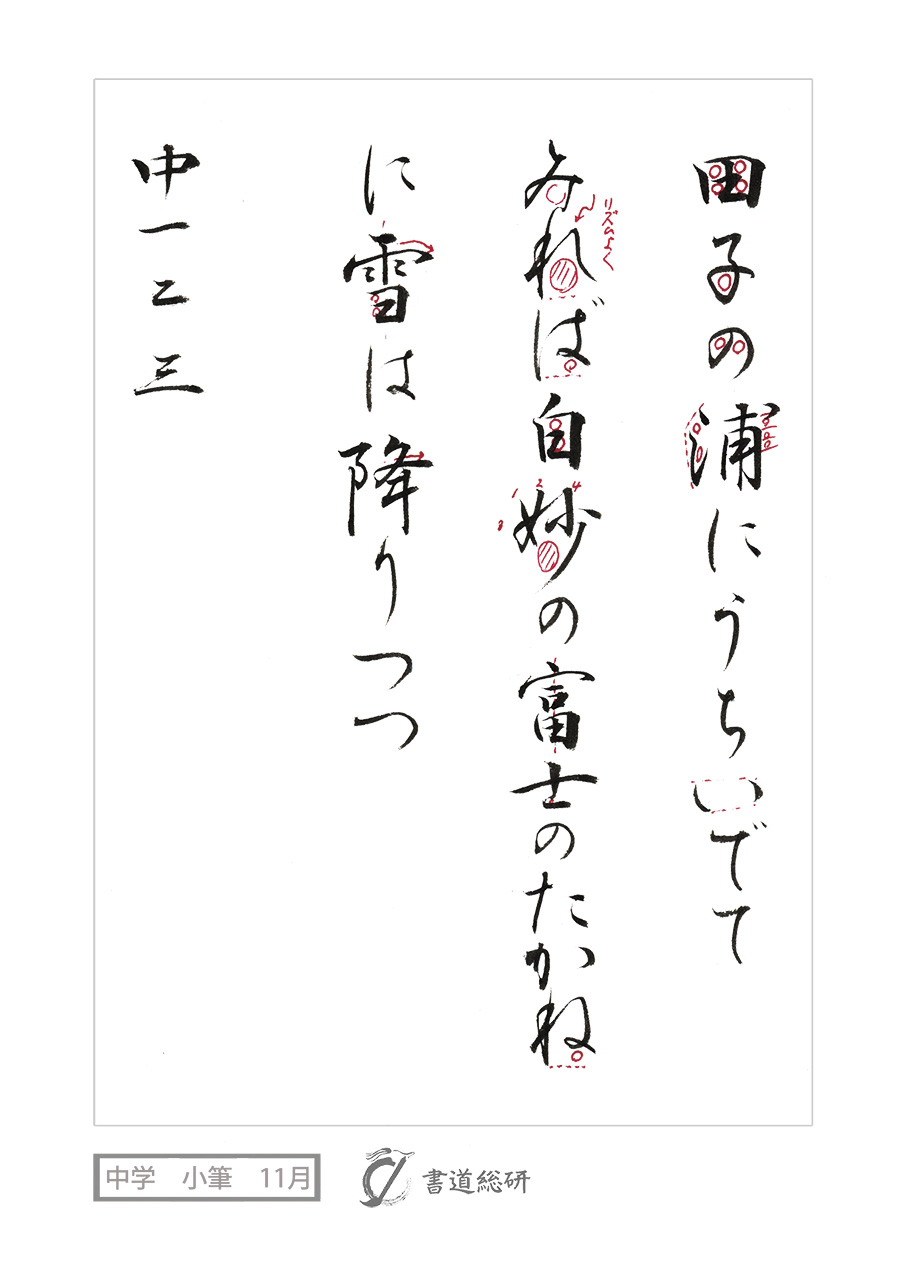 田子の浦にうちいでて
みれば白妙の富士のたかね
リズムよく
に雪は降りつつ
中一二三
中学 小筆 11月
書道総研